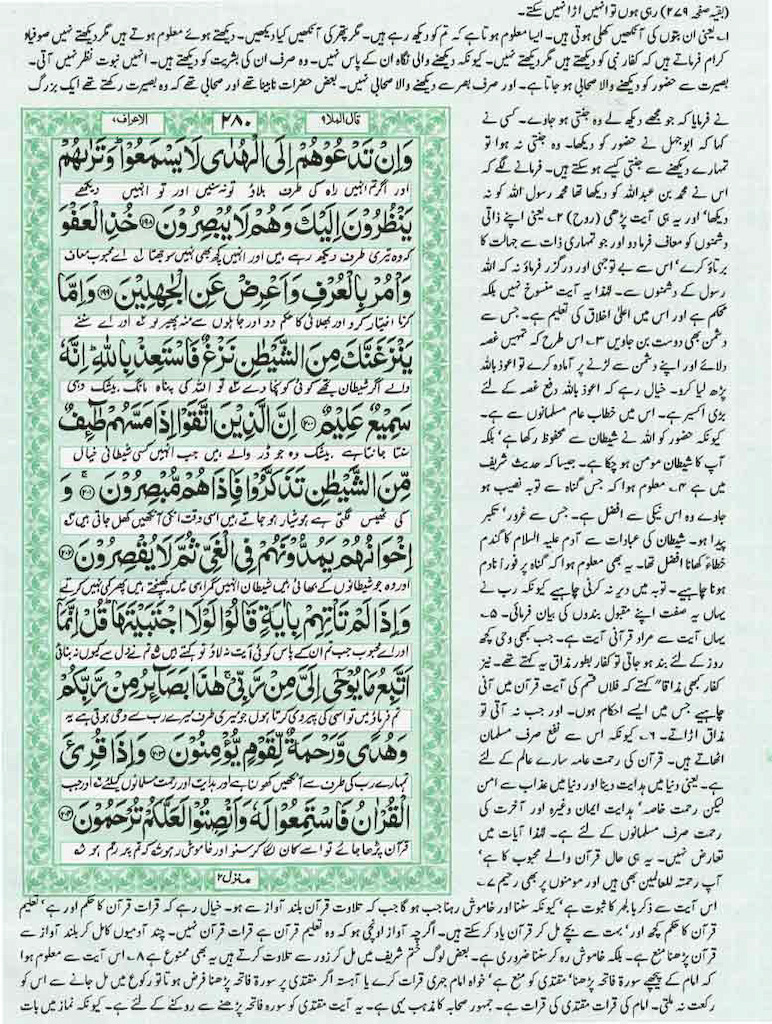 (بقیہ صفحہ ۲۷۹) رہی ہوں تو انہیں اڑا نہیں سکتے۔
۱۔ یعنی ان بتوں کی آنکھیں کھلی ہوتی ہیں۔ ایسا معلوم ہوتا ہے کہ تم کو دیکھ رہے ہیں۔ مگر پتھر کی آنکھیں کیا دیکھیں۔ دیکھتے ہوئے معلوم ہوتے ہیں مگر دیکھتے نہیں صوفیاء
کرام فرماتے ہیں کہ کفار نبی کو دیکھتے ہیں مگر دیکھتے نہیں۔ کیونکہ دیکھنے والی نگاہ ان کے پاس نہیں۔ وہ صرف ان کی بشریت کو دیکھتے ہیں۔ انہیں نبوت نظر نہیں آتی۔
بصیرت سے حضور کو دیکھنے والا صحابی ہو جاتا ہے۔ اور صرف بصر سے دیکھنے والا صحابی نہیں۔ بعض حضرات نابینا تھے اور صحابی تھے کہ وہ بصیرت رکھتے تھے ایک بزرگ
نے فرمایا کہ جو مجھے دیکھ لے وہ جنتی ہو جاوے۔ کسی نے
کہا کہ ابوجہل نے حضور کو دیکھا۔ وہ جنتی نہ ہوا تو
تمہارے دیکھنے سے جنتی کیسے ہو سکتے ہیں۔ فرمانے لگے کہ
اس نے محمد بن عبداللہ کو دیکھا تھا محمد رسول اللہ کو نہ
دیکھا' اور یہ ہی آیت پڑھی (روح) ۲۔ یعنی اپنے ذاتی
دشمنوں کو معاف فرما دو اور جو تمہاری ذات سے جہالت کا
برتاؤ کرے' اس سے بے توجہی اور درگزر فرماؤ نہ کہ اللہ
رسول کے دشمنوں سے۔ لہٰذا یہ آیت منسوخ نہیں بلکہ
محکم ہے اور اس میں اعلیٰ اخلاق کی تعلیم ہے۔ جس سے
دشمن بھی دوست بن جاویں ۳۔ اس طرح کہ تمہیں غصہ
دلائے اور اپنے دشمن سے لڑنے پر آمادہ کرے تو اعوذ باللہ
پڑھ لیا کرو۔ خیال رہے کہ اعوذ باللہ دفع غصہ کے لئے
بڑی اکسیر ہے۔ اس میں خطاب عام مسلمانوں سے ہے۔
کیونکہ حضور کو اللہ نے شیطان سے محفوظ رکھا ہے' بلکہ
آپ کا شیطان مومن ہو چکا ہے۔ جیسا کہ حدیث شریف
میں ہے ۴۔ معلوم ہوا کہ جس گناہ سے توبہ نصیب ہو
جاوے وہ اس نیکی سے افضل ہے۔ جس سے غرور' تکبر
پیدا ہو۔ شیطان کی عبادات سے آدم علیہ السلام کا گندم
خطاءً کھانا افضل تھا۔ یہ بھی معلوم ہوا کہ گناہ پر فوراً نادم
ہونا چاہیے۔ توبہ میں دیر نہ کرنی چاہیے کیونکہ رب نے
یہاں یہ صفت اپنے مقبول بندوں کی بیان فرمائی۔ ۵۔
یہاں آیت سے مراد قرآنی آیت ہے۔ جب بھی وحی کچھ
روز کے لئے بند ہو جاتی تو کفار بطور مذاق یہ کہتے تھے۔ نیز
کفار بھی مذاقاً کہتے کہ فلاں قسم کی آیت قرآن میں آنی
چاہیے جس میں ایسے احکام ہوں۔ اور جب نہ آتی تو
مذاق اڑاتے۔ ۶۔ کیونکہ اس سے نفع صرف مسلمان
اٹھاتے ہیں۔ قرآن کی رحمت عامہ سارے عالم کے لئے
ہے۔ یعنی دنیا میں ہدایت دینا اور دنیا میں عذاب سے امن
لیکن رحمت خاصہ' ہدایت ایمان وغیرہ اور آخرت کی
رحمت صرف مسلمانوں کے لئے ہے۔ لہٰذا آیات میں
تعارض نہیں۔ یہ ہی حال قرآن والے محبوب کا ہے'
آپ رحمتہ للعالمین بھی ہیں اور مومنوں پر بھی رحیم ۷۔
قال الملا۹
۲۸۰
الاعراف۷
وَاِنْ تَدْعُوْهُمْ اِلَى الْهُدٰى لَا يَسْمَعُوْا ؕ وَتَرٰىهُمْ
اور اگر تم انہیں راہ کی طرف بلاؤ تو نہ سنیں اور تو انہیں دیکھے
يَنْظُرُوْنَ اِلَيْكَ وَهُمْ لَا يُبْصِرُوْنَ ۱۹۸ خُذِ الْعَفْوَ
کہ وہ تیری طرف دیکھ رہے ہیں اور انہیں کچھ بھی نہیں سوجھتا لے اے محبوب معاف
وَاْمُرْ بِالْعُرْفِ وَاَعْرِضْ عَنِ الْجٰهِلِيْنَ ۱۹۹ وَاِمَّا
کرنا اختیار کرو اور بھلائی کا حکم دو اور جاہلوں سے منہ پھیر لو ۲ اور اے سننے
يَنْزَغَنَّكَ مِنَ الشَّيْطٰنِ نَزْغٌ فَاسْتَعِذْ بِاللّٰهِ ؕ اِنَّهٗ
والے اگر شیطان تجھے کوئی کونچا دے ۳ تو اللہ کی پناہ مانگ بیشک وہی
سَمِيْعٌ عَلِيْمٌ ۲۰۰ اِنَّ الَّذِيْنَ اتَّقَوْا اِذَا مَسَّهُمْ طٰٓئِفٌ
سنتا جانتا ہے بیشک وہ جو ڈر والے ہیں جب انہیں کسی شیطانی خیال
مِّنَ الشَّيْطٰنِ تَذَكَّرُوْا فَاِذَا هُمْ مُّبْصِرُوْنَ ۲۰۱ وَ
کی ٹھیس لگتی ہے ہوشیار ہو جاتے ہیں اسی وقت انکی آنکھیں کھل جاتی ہیں ۴
اِخْوَانُهُمْ يَمُدُّوْنَهُمْ فِى الْغَيِّ ثُمَّ لَا يُقْصِرُوْنَ ۲۰۲
اور وہ جو شیطانوں کے بھائی ہیں شیطان انہیں گمراہی میں کھینچتے ہیں پھر کمی نہیں کرتے
وَاِذَا لَمْ تَاْتِهِمْ بِاٰيَةٍ قَالُوْا لَوْلَا اجْتَبَيْتَهَا ؕ قُلْ اِنَّمَآ
اور اے محبوب جب تم ان کے پاس کوئی آیت نہ لاؤ تو کہتے ہیں ۵ تم نے دل سے کیوں نہ بنائی
اَتَّبِعُ مَا يُوْحٰٓى اِلَىَّ مِنْ رَّبِّىْ ۚ هٰذَا بَصَآئِرُ مِنْ رَّبِّكُمْ
تم فرماؤ میں تو اسی کی پیروی کرتا ہوں جو میری طرف میرے رب سے وحی ہوتی ہے یہ
وَهُدًى وَّرَحْمَةٌ لِّقَوْمٍ يُّؤْمِنُوْنَ ۲۰۳ وَاِذَا قُرِئَ
تمہارے رب کی طرف سے آنکھیں کھولنا ہے اور ہدایت اور رحمت مسلمانوں کیلئے ۶ اور جب
الْقُرْاٰنُ فَاسْتَمِعُوْا لَهٗ وَاَنْصِتُوْا لَعَلَّكُمْ تُرْحَمُوْنَ ۲۰۴
قرآن پڑھا جائے تو اسے کان لگا کر سنو اور خاموش رہو ۷ کہ تم پر رحم ہو ۸
منزل۲
اس آیت سے ذکر بالجہر کا ثبوت ہے' کیونکہ سننا اور خاموش رہنا جب ہو گا جب کہ تلاوت قرآن بلند آواز سے ہو۔ خیال رہے کہ قرات قرآن کا حکم اور ہے' تعلیم
قرآن کا حکم کچھ اور' بہت سے بچے مل کر قرآن یاد کر سکتے ہیں۔ اگرچہ آواز اونچی ہو کہ وہ تعلیم قرآن ہے قرات قرآن نہیں۔ چند آدمیوں کا مل کر بلند آواز سے
قرآن پڑھنا منع ہے۔ بلکہ خاموش رہ کر سننا ضروری ہے۔ بعض لوگ ختم شریف میں مل کر زور سے تلاوت کرتے ہیں یہ بھی ممنوع ہے ۸۔ اس آیت سے معلوم ہوا
کہ امام کے پیچھے سورۃ فاتحہ پڑھنا' مقتدی کو منع ہے' خواہ امام جہری قرات کرے یا آہستہ اگر مقتدی پر سورۃ فاتحہ پڑھنا فرض ہوتا تو رکوع میں مل جانے سے اس کو
رکعت نہ ملتی۔ امام کی قرات مقتدی کی قرات ہے۔ جمہور صحابہ کا مذہب یہی ہے۔ یہ آیت مقتدی کو سورۃ فاتحہ پڑھنے سے روکنے کے لئے ہے۔ کیونکہ نماز میں بات